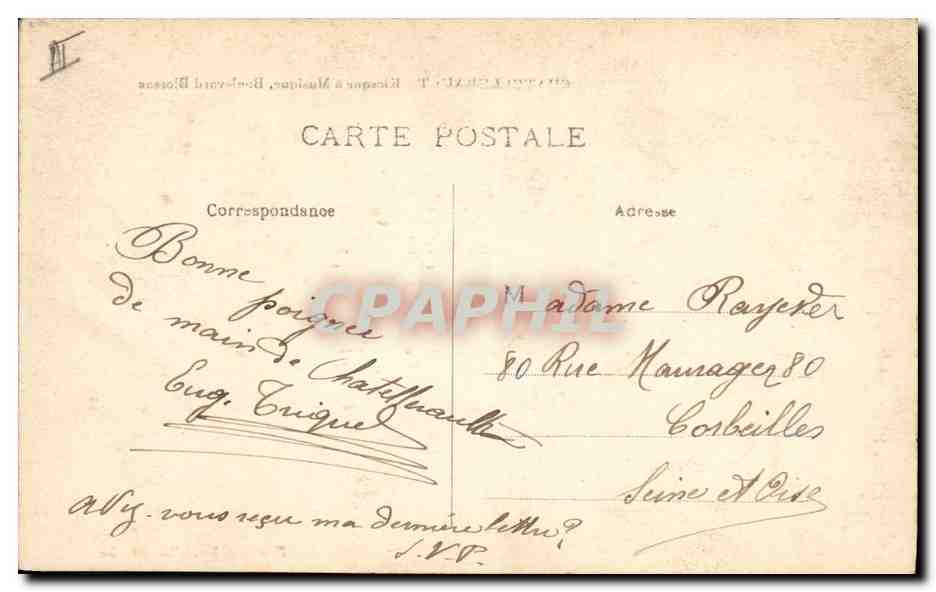 III
CHATELLERAULT Kiosque à Musique, Boulevard Blossac
CARTE POSTALE
Correspondance
Adresse
Bonne
poignée
de main de Chatellerault
Eug. Triquel
avez-vous reçu ma dernière lettre?
S.V.P.
Madame Raycker
80 Rue 80
Corbeilles
Seine et Oise
CPAPHIL